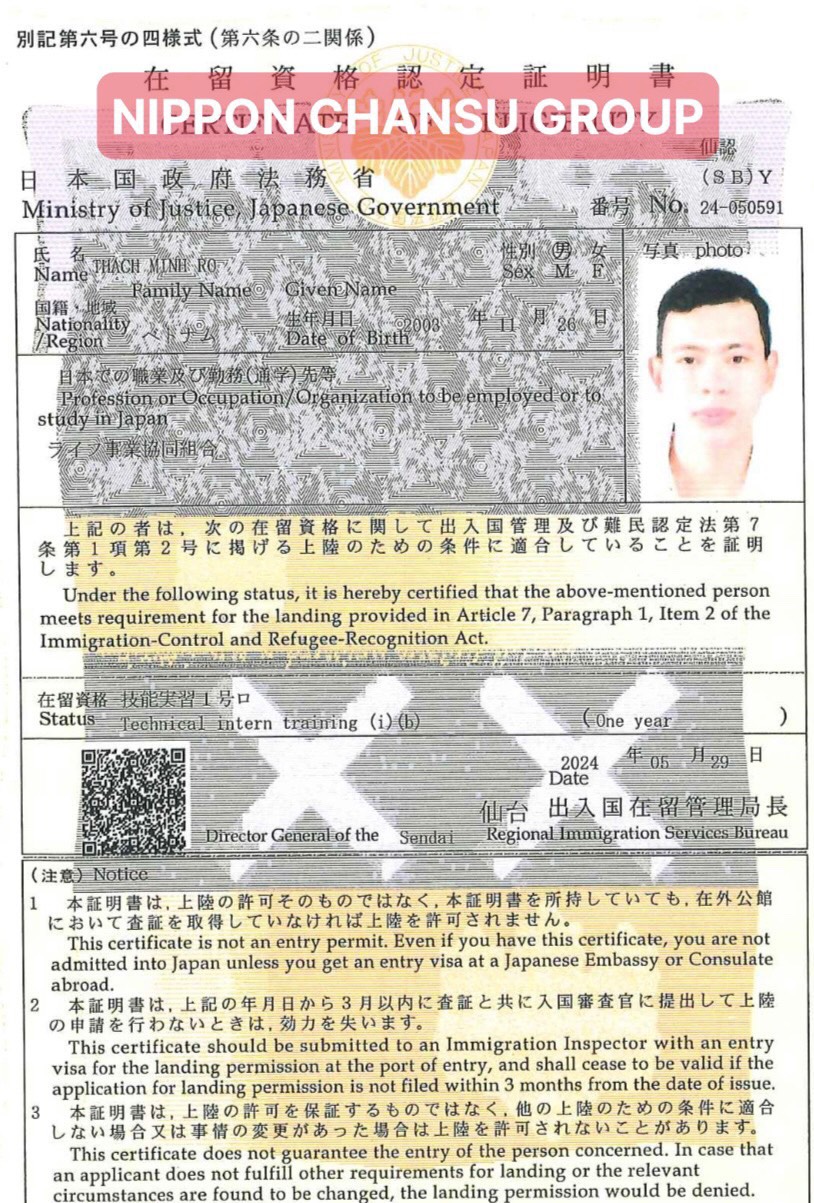 別記第六号の四様式(第六条の二関係)
在留資格認定証明書
NIPPON CHANSU GROUP
CERTIFICATE OF ELIGIBILITY
仙認
日本国政府法務省
(SB)Y
Ministry of Justice, Japanese Government
番号 No. 24-050591
氏名
Name THACH MINH RO
Family Name Given Name
性別 男 女
Sex M F
写真 photo
国籍・地域
Nationality
/Region ベトナム
生年月日 2003 年 11 月 26 日
Date of Birth
日本での職業及び勤務(通学)先等
Profession or Occupation/Organization to be employed or to
study in Japan
ライフ事業協同組合
上記の者は,次の在留資格に関して出入国管理及び難民認定法第7
条第1項第2号に掲げる上陸のための条件に適合していることを証明
します。
Under the following status, it is hereby certified that the above-mentioned person
meets requirement for the landing provided in Article 7, Paragraph 1, Item 2 of the
Immigration-Control and Refugee-Recognition Act.
在留資格 技能実習1号ロ
Status Technical intern training (i)(b) (One year )
2024 年 05 月 29 日
Date
仙台 出入国在留管理局長
Director General of the Sendai Regional Immigration Services Bureau
(注意) Notice
1 本証明書は,上陸の許可そのものではなく,本証明書を所持していても,在外公館
において査証を取得していなければ上陸を許可されません。
This certificate is not an entry permit. Even if you have this certificate, you are not
admitted into Japan unless you get an entry visa at a Japanese Embassy or Consulate
abroad.
2 本証明書は,上記の年月日から3月以内に査証と共に入国審査官に提出して上陸
の申請を行わないときは,効力を失います。
This certificate should be submitted to an Immigration Inspector with an entry
visa for the landing permission at the port of entry, and shall cease to be valid if the
application for landing permission is not filed within 3 months from the date of issue.
3 本証明書は,上陸の許可を保証するものではなく,他の上陸のための条件に適合
しない場合又は事情の変更があった場合は上陸を許可されないことがあります。
This certificate does not guarantee the entry of the person concerned. In case that
an applicant does not fulfill other requirements for landing or the relevant
circumstances are found to be changed, the landing permission would be denied.